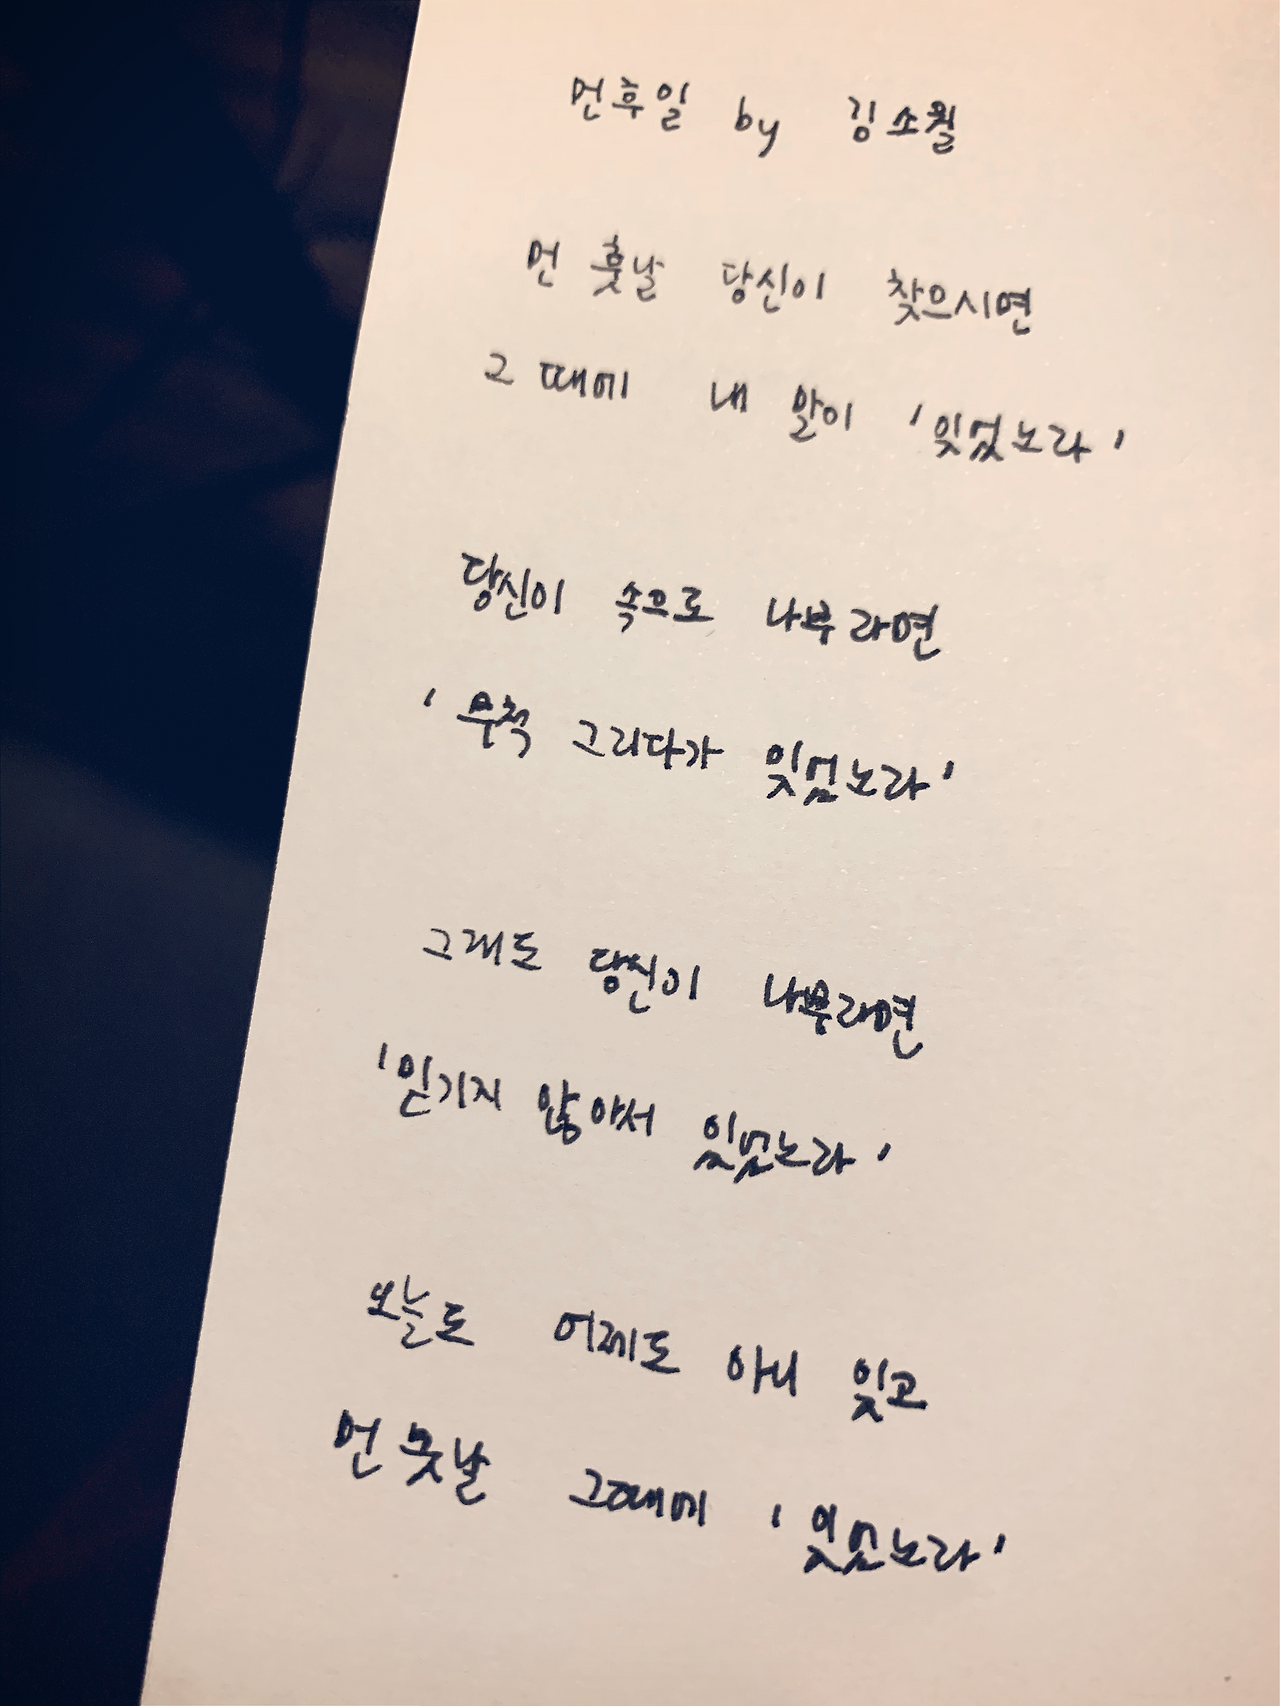 먼후일 by 김소월
먼 훗날 당신이 찾으시면
그 때에 내 말이 '잊었노라'
당신이 속으로 나무라면
'무척 그리다가 잊었노라'
그래도 당신이 나무라면
'믿기지 않아서 잊었노라'
오늘도 어제도 아니 잊고
먼 훗날 그때에 '잊었노라'